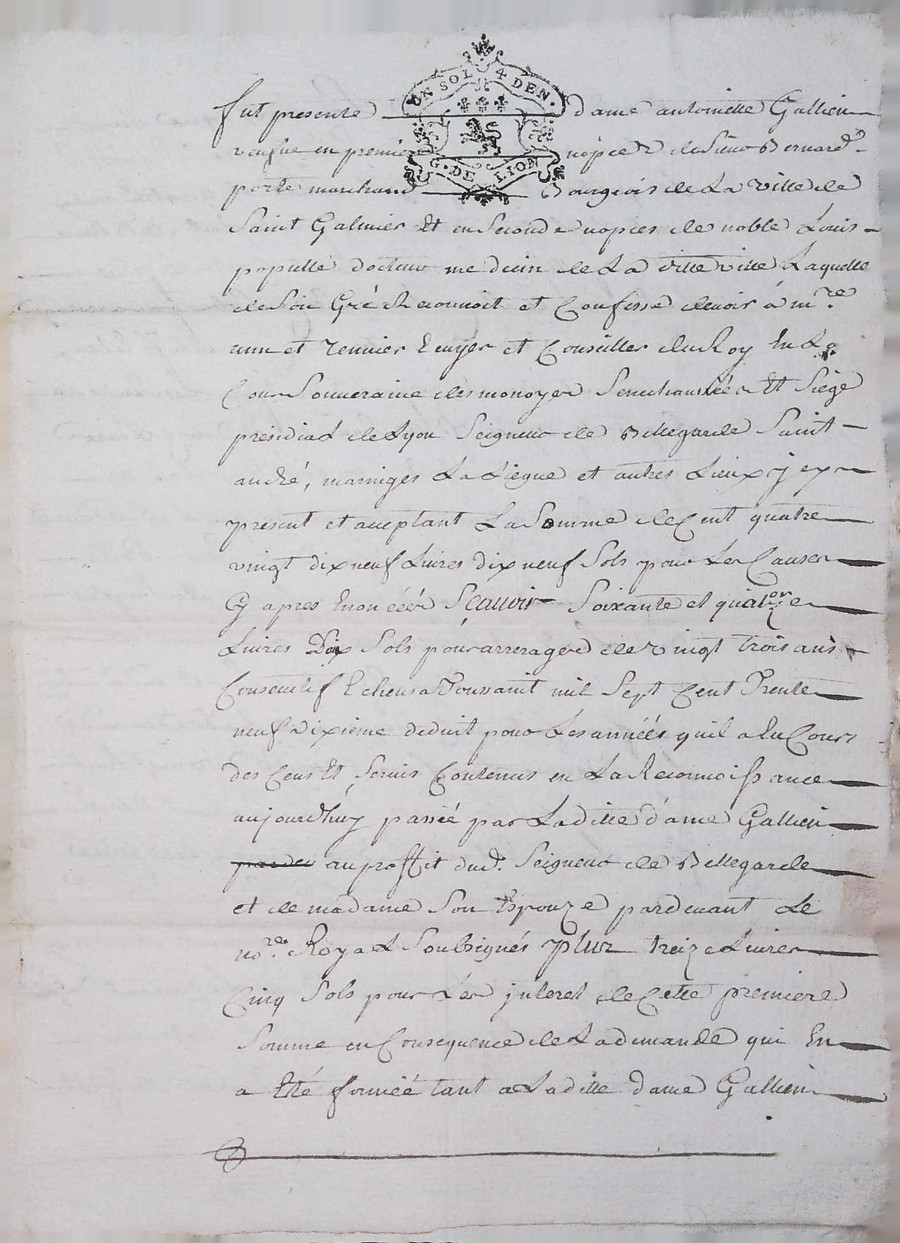 UN SOL 4 DEN.
G. DE LION
fut presente dame antoinette Gallien
veufue en premier nopces de Sieur Bernard
porte marchand Bourgeois de La Ville de
Saint Galmier Et en Seconde nopces de noble Louis
populle docteur medecin de La ditte ville Laquelle
de Son Gré Reconnoit et Confesse devoir à m.re
ann et Ecuyer et Conseiller du Roy En La
Cour Souveraine des monoyes Senechaussée Et Siège
présidial de Lyon Seigneur de Bellegarde Saint
andré, marniges La Liegue et autres Lieux jcy
present et aceptant La Somme de Cent quatre
vingt dix neuf Livres dix neuf Sols pour Les Causes
Cy apres Enoncéés Sçauoir Soixante et quatorze
Livres Dix Sols pour arrerages de vingt trois ans
Consecutif Echeus a Toussaint mil Sept Cent Trente
neuf dixieme deduit pour Les annéés quil a Eu Cours
des Cens Et Servis Contenus en La Reconnoissance
aujourdhuy passéé par Laditte d'ame Gallien
au proffit dud. Seigneur de Bellegarde
et de madame Son Espouze pardevant Le
no.re Royal Soubsignés plus treize Livres
Cinq Sols pour Les jnteret de Cette premiere
Somme en Consequence de La demande qui En
a Eté forméé tant a Laditte dame Gallien